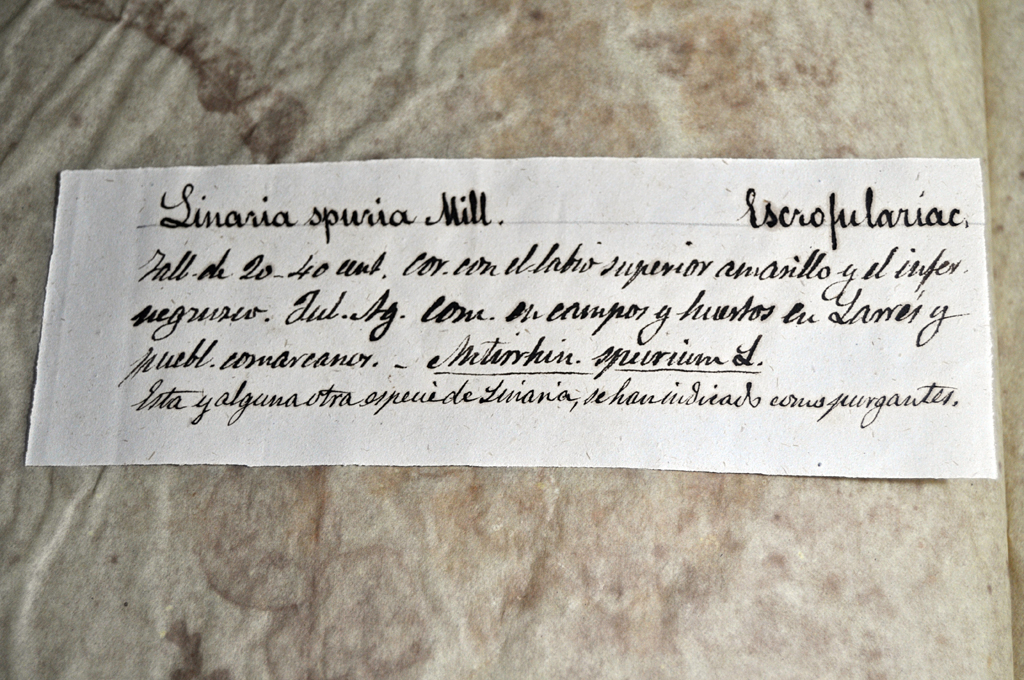 Linaria spuria Mill. Escrofulariac.
Tall. de 20-40 cent. Cor. con el labio superior amarillo y el infer.
negruzco. Jul. Ag. Com. en campos y huertos en Larrés y
puebl. comarcanos. - Antirrhin. spurium L.
Esta y alguna otra especie de Linaria, se han indicado como purgantes.